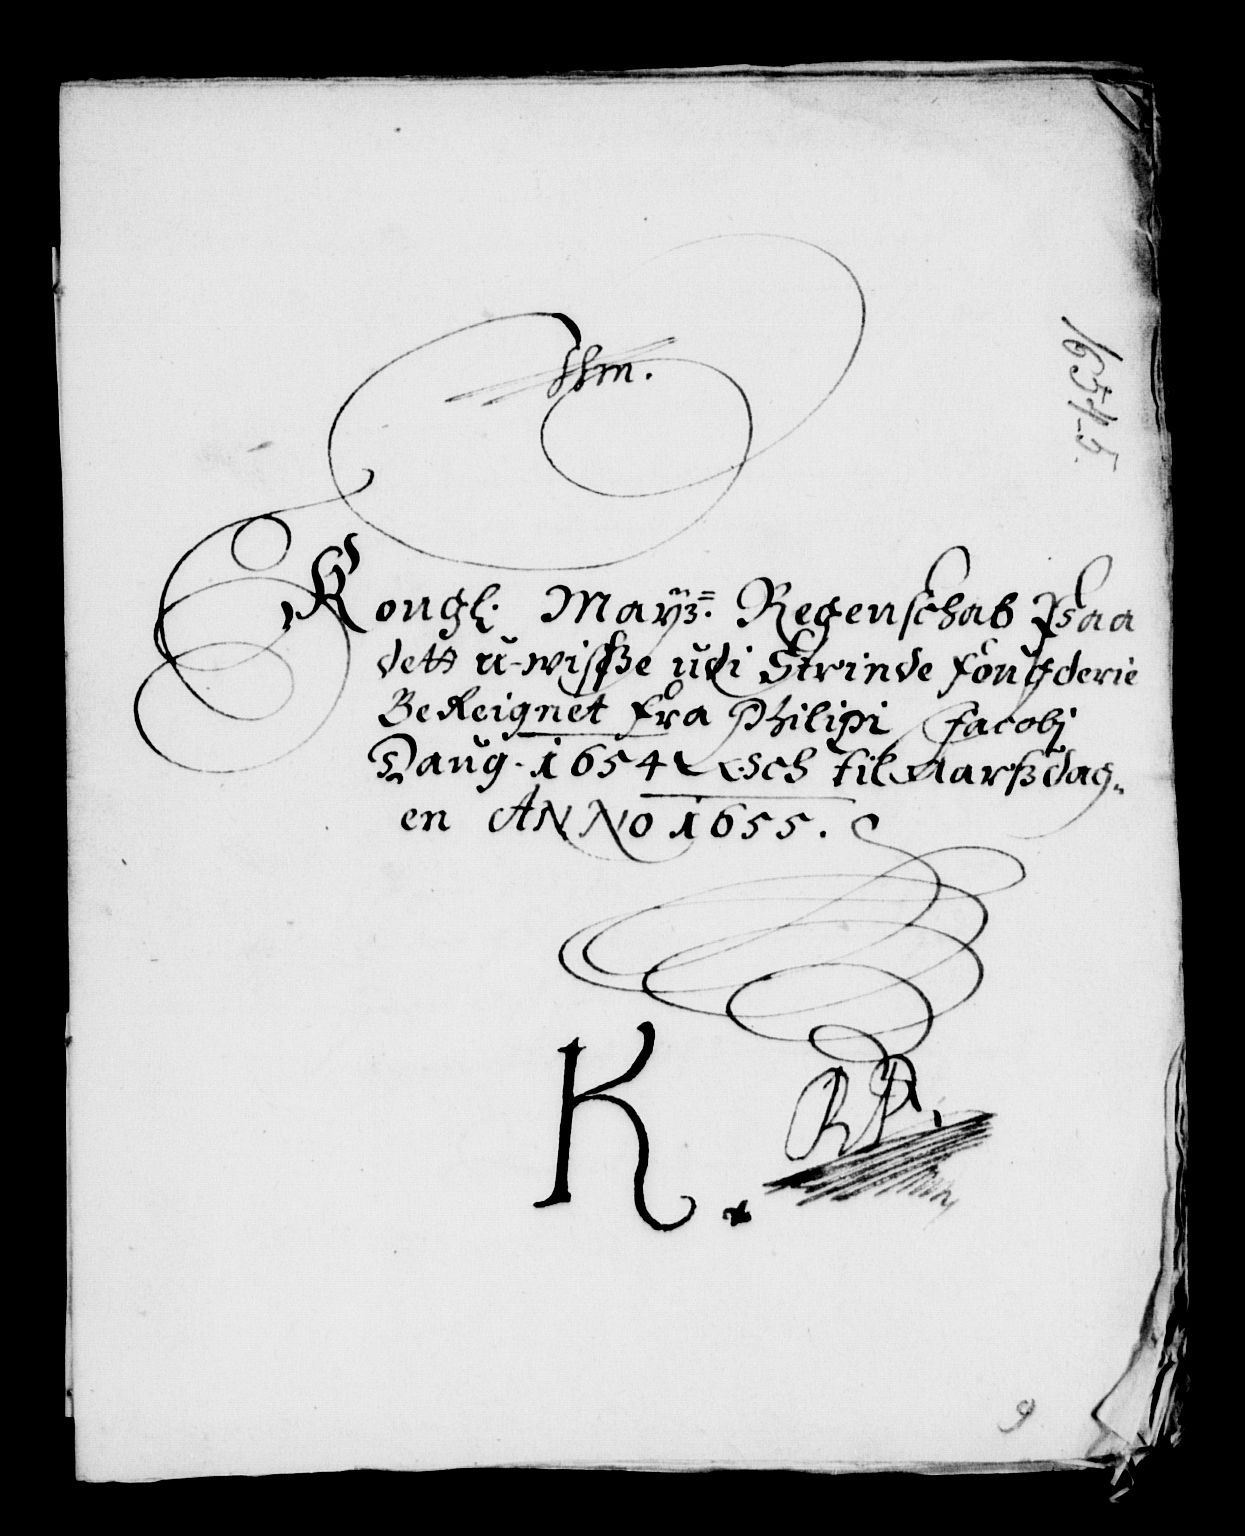 1654-5.
Kongl: Maytz: Regenschab Paa
dett u-wisße udi Strinde fougderie
Bereignet fra Philipi Jacobj
Daug. 1654 och til aarßdag„
en ANNO 1655.
K.
9